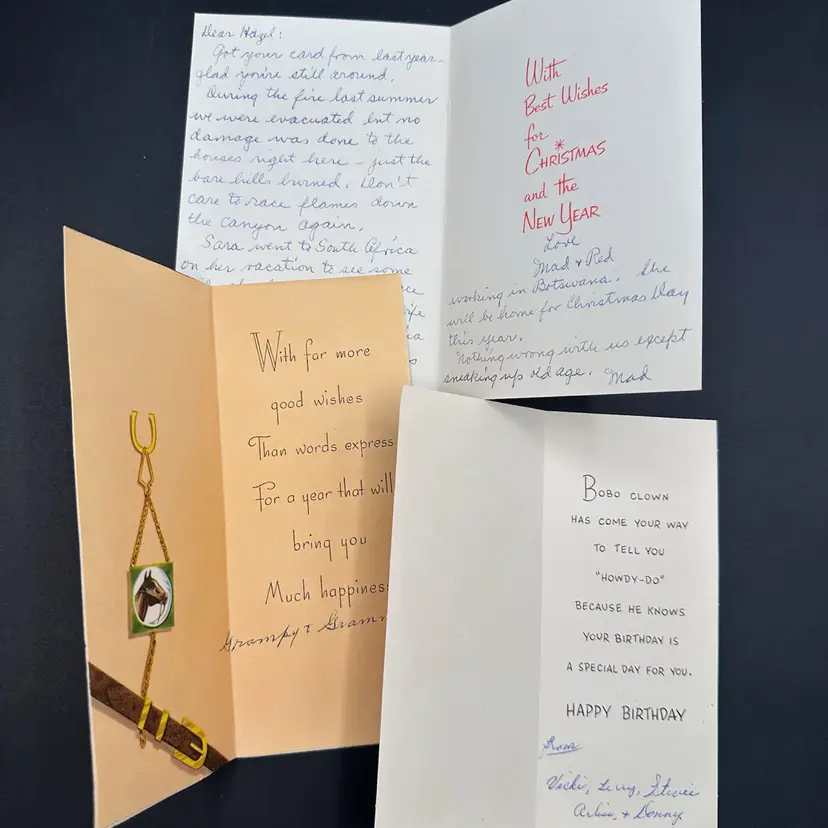 Dear Hazel:
Got your card from last year—
glad you're still around.
During the fire last summer
we were evacuated but no
damage was done to the
houses right here – just the
bare hills burned. Don't
care to race flames down
the canyon again.
Sara went to South Africa
on her vacation to see some
With
Best Wishes
for
CHRISTMAS
and the
NEW YEAR
Love
Mad + Red
working in Botswana. She
will be home for Christmas Day
this year.
Nothing wrong with us except
sneaking up old age. Mad
With far more
good wishes
Than words express
For a year that will
bring you
Much happiness
Grampy &
BOBO CLOWN
HAS COME YOUR WAY
TO TELL YOU
"HOWDY-DO"
BECAUSE HE KNOWS
YOUR BIRTHDAY IS
A SPECIAL DAY FOR YOU.
HAPPY BIRTHDAY
from
Vicki, Stevie
+ Donny